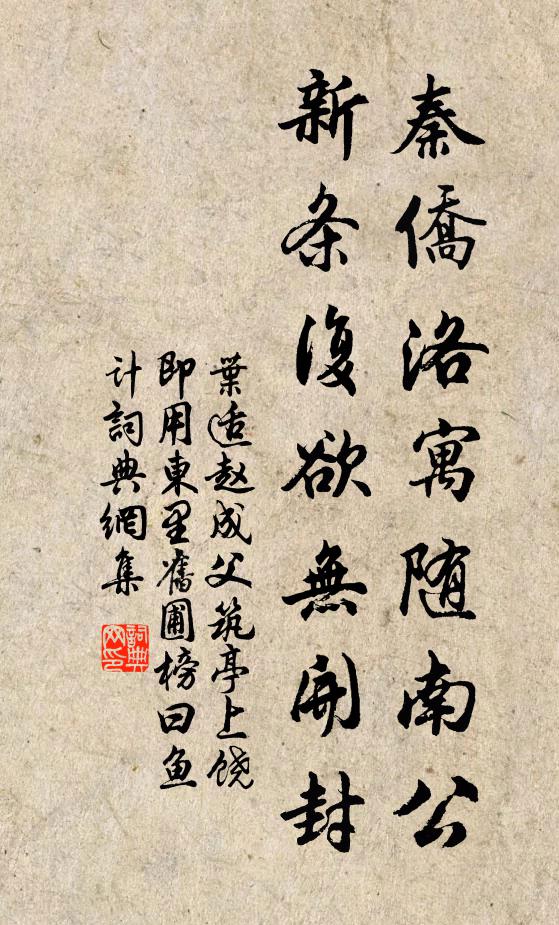 秦僑洛寓随南公
新条復欲無開封
葉适赵成父筑亭上饶
即用東里舊圃榜曰鱼
计詞典網集
詞典网印